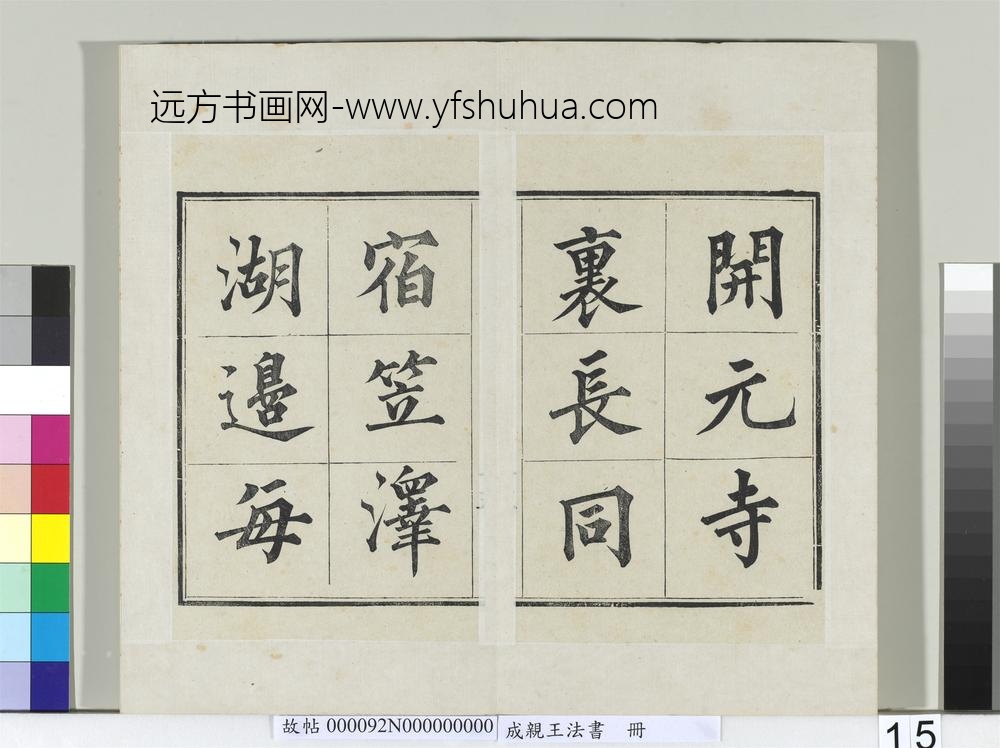 远方书画网-www.yfshuhua.com
開元寺
裏長同
宿笠澤
湖邉每
故帖 000092N000000000 成親王法書 冊
15